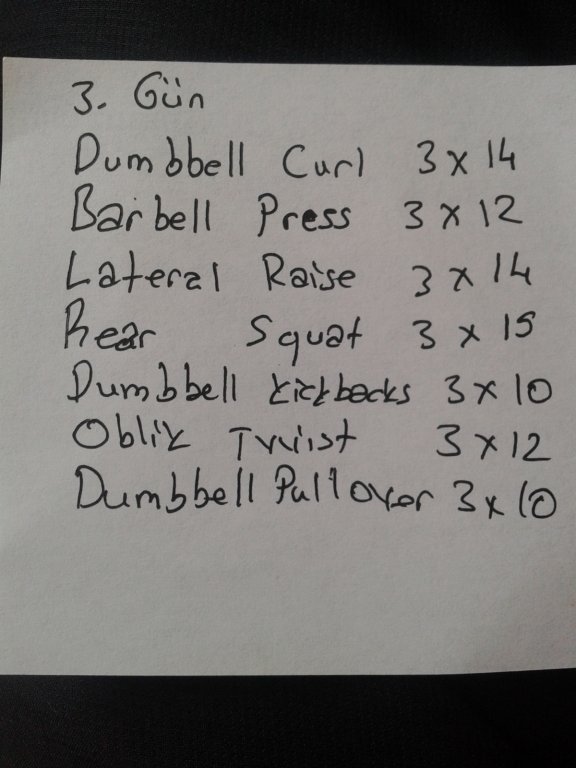 3. Gün
Dumbbell Curl 3 x 14
Barbell Press 3 x 12
Lateral Raise 3 x 14
Rear Squat 3 x 15
Dumbbell kickbacks 3 x 10
Oblik Twist 3 x 12
Dumbbell Pullover 3 x 10